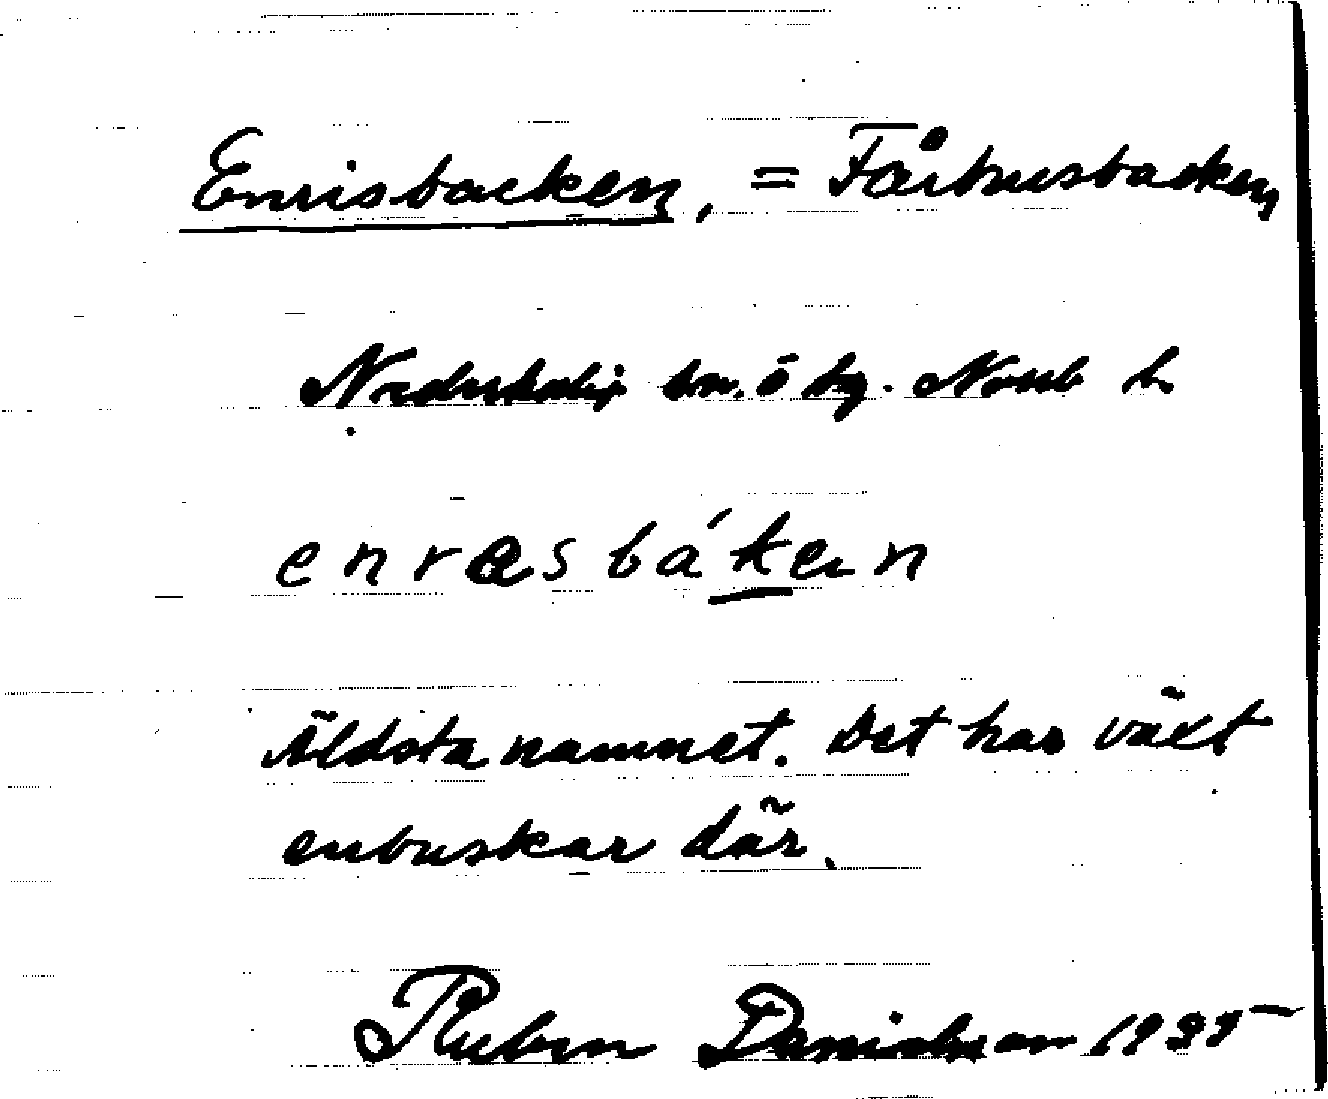 Enrisbacken, = Fårhusbacken
Nederkalix sn. ö bg. Norrb l.
enræsbáken
Äldsta namnet. Det har växt
enbuskar där.
Ruben Danielsson 1935